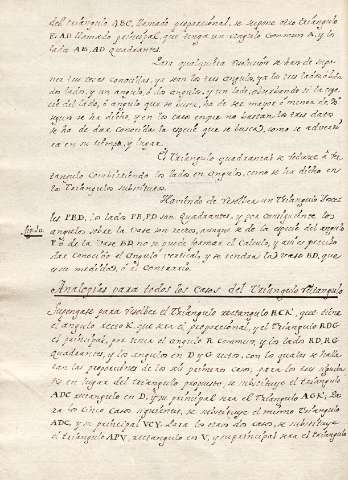 del triángulo ABC, llamado proporcional, se supone otro triángulo
EAD llamado principal, que tenga un angulo Commun A, y los
lados AE, AD quadrantes.
Para qualquiera resolucion se han de supo-
ner tres cosas conocidas, ya sean los tres angulos, ya los tres lados, ó dos
dos lados, y un angulo ó dos angulos, y un lado, observando si la espe-
cie del lado, ó angulo que se busca, ha de ser mayor ó menor de 90
segun se ha dicho, y en los casos en que no bastan los tres datos
se ha de dar conocida la especie que se busca, como se adverti-
ra en su tiempo, y lugar.
El Triangulo quadrantal se reduce á Rec-
tangulo Combirtiendo los lados en angulos, como se ha dicho en
los Triangulos substitutos.
Haviendo de resolver un Triangulo Isosce-
les PBD, los lados PB, PD son Quadrantes, y por consiguiente los
angulos sobre la vase son rectos, aunque de la especie del angulo
P ó de la vase BD no se puede formar el Calculo, y assi es preciso
dar conocido el Angulo vertical, y se tendra la vase BD, que
es su medida, ó al Contrario.
Analogias para todos los Casos del Triangulo Rectangulo
Supongase para resolver el Triangulo rectangulo RCK, que tiene
el angulo recto K, que sea el proporcional, y el Triangulo RDG
el principal, por tener el angulo R Commun, y los lados RD, RG
quadrantes, y los angulos en D y G rectos, con lo quales se halla-
ran las proporciones de los seis primeros casos, para los tres siguien-
tes en lugar del triangulo propuesto se substituye el triangulo
ADC rectangulo en D, y su principal sera el Triangulo AGK, Pa-
ra los Cinco casos siguientes, se substituye el mismo Triangulo
ADC, y su principal VCY. Para los otros dos casos, se substituye
el triangulo APV, rectangulo en V, y su principal sera el triangulo